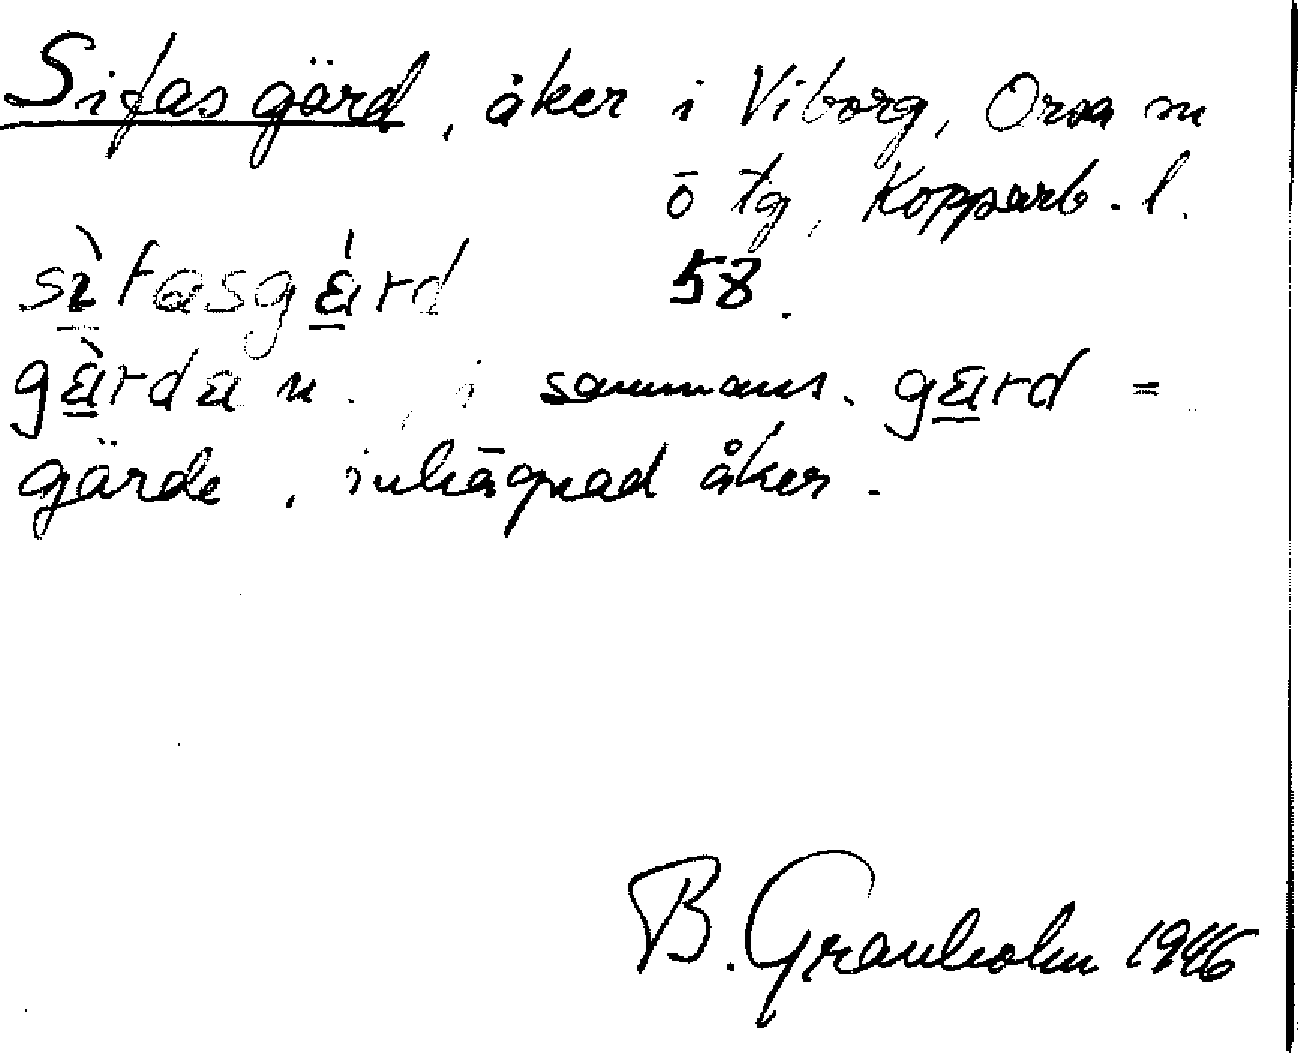 Sifasgärd, åker i Viborg, Orsa sn
ö tg, Kopparb. l.
sìfasgárd 58.
gàrda n., i sammans. gard =
gärde, inhägnad åker.
B. Granholm 1946